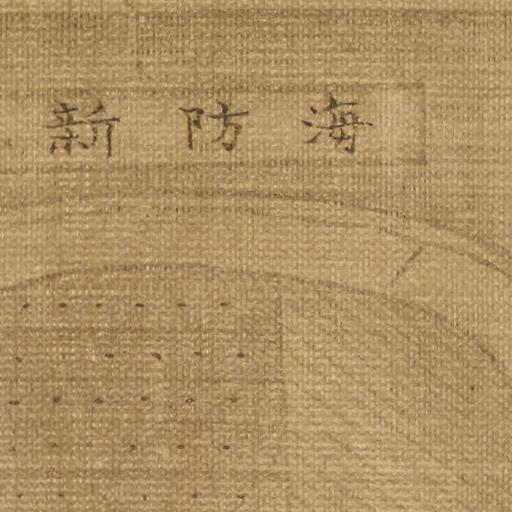 海防新